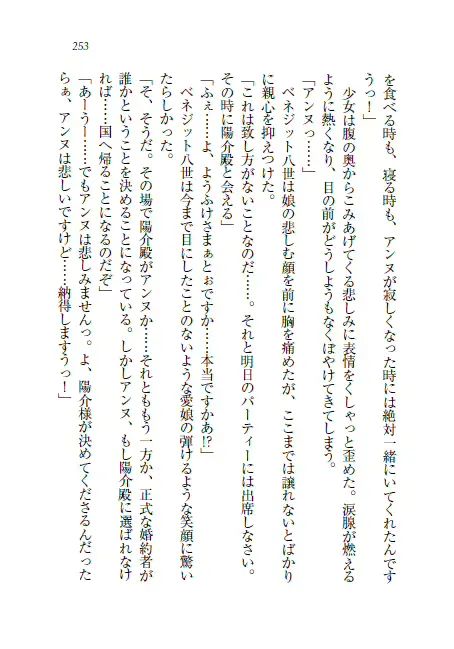 253
を食べる時も、寝る時も、アンヌが寂しくなった時には絶対一緒にいてくれたんです
うっ！」
少女は腹の奥からこみあげてくる悲しみに表情をくしゃっと歪めた。涙腺が燃える
ように熱くなり、目の前がどうしようもなくぼやけてきてしまう。
「アンヌっ……」
ベネジット八世は娘の悲しむ顔を前に胸を痛めたが、ここまでは譲れないとばかり
に親心を抑えつけた。
「これは致し方がないことなのだ……。それと明日のパーティーには出席しなさい。
その時に陽介殿と会える」
「ふぇ……よ、ようふけさまぁとぉですか……本当ですかあ!?」
ベネジット八世は今まで目にしたことのないような愛娘の弾けるような笑顔に驚い
たらしかった。
「そ、そうだ。その場で陽介殿がアンヌか……それとももう一方か、正式な婚約者が
誰かということを決めることになっている。しかしアンヌ、もし陽介殿に選ばれなけ
れば……国へ帰ることになるのだぞ」
「あーうー……でもアンヌは悲しみませんっ。よ、陽介様が決めてくださるんだった
らぁ、アンヌは悲しいですけど……納得しますうっ！」